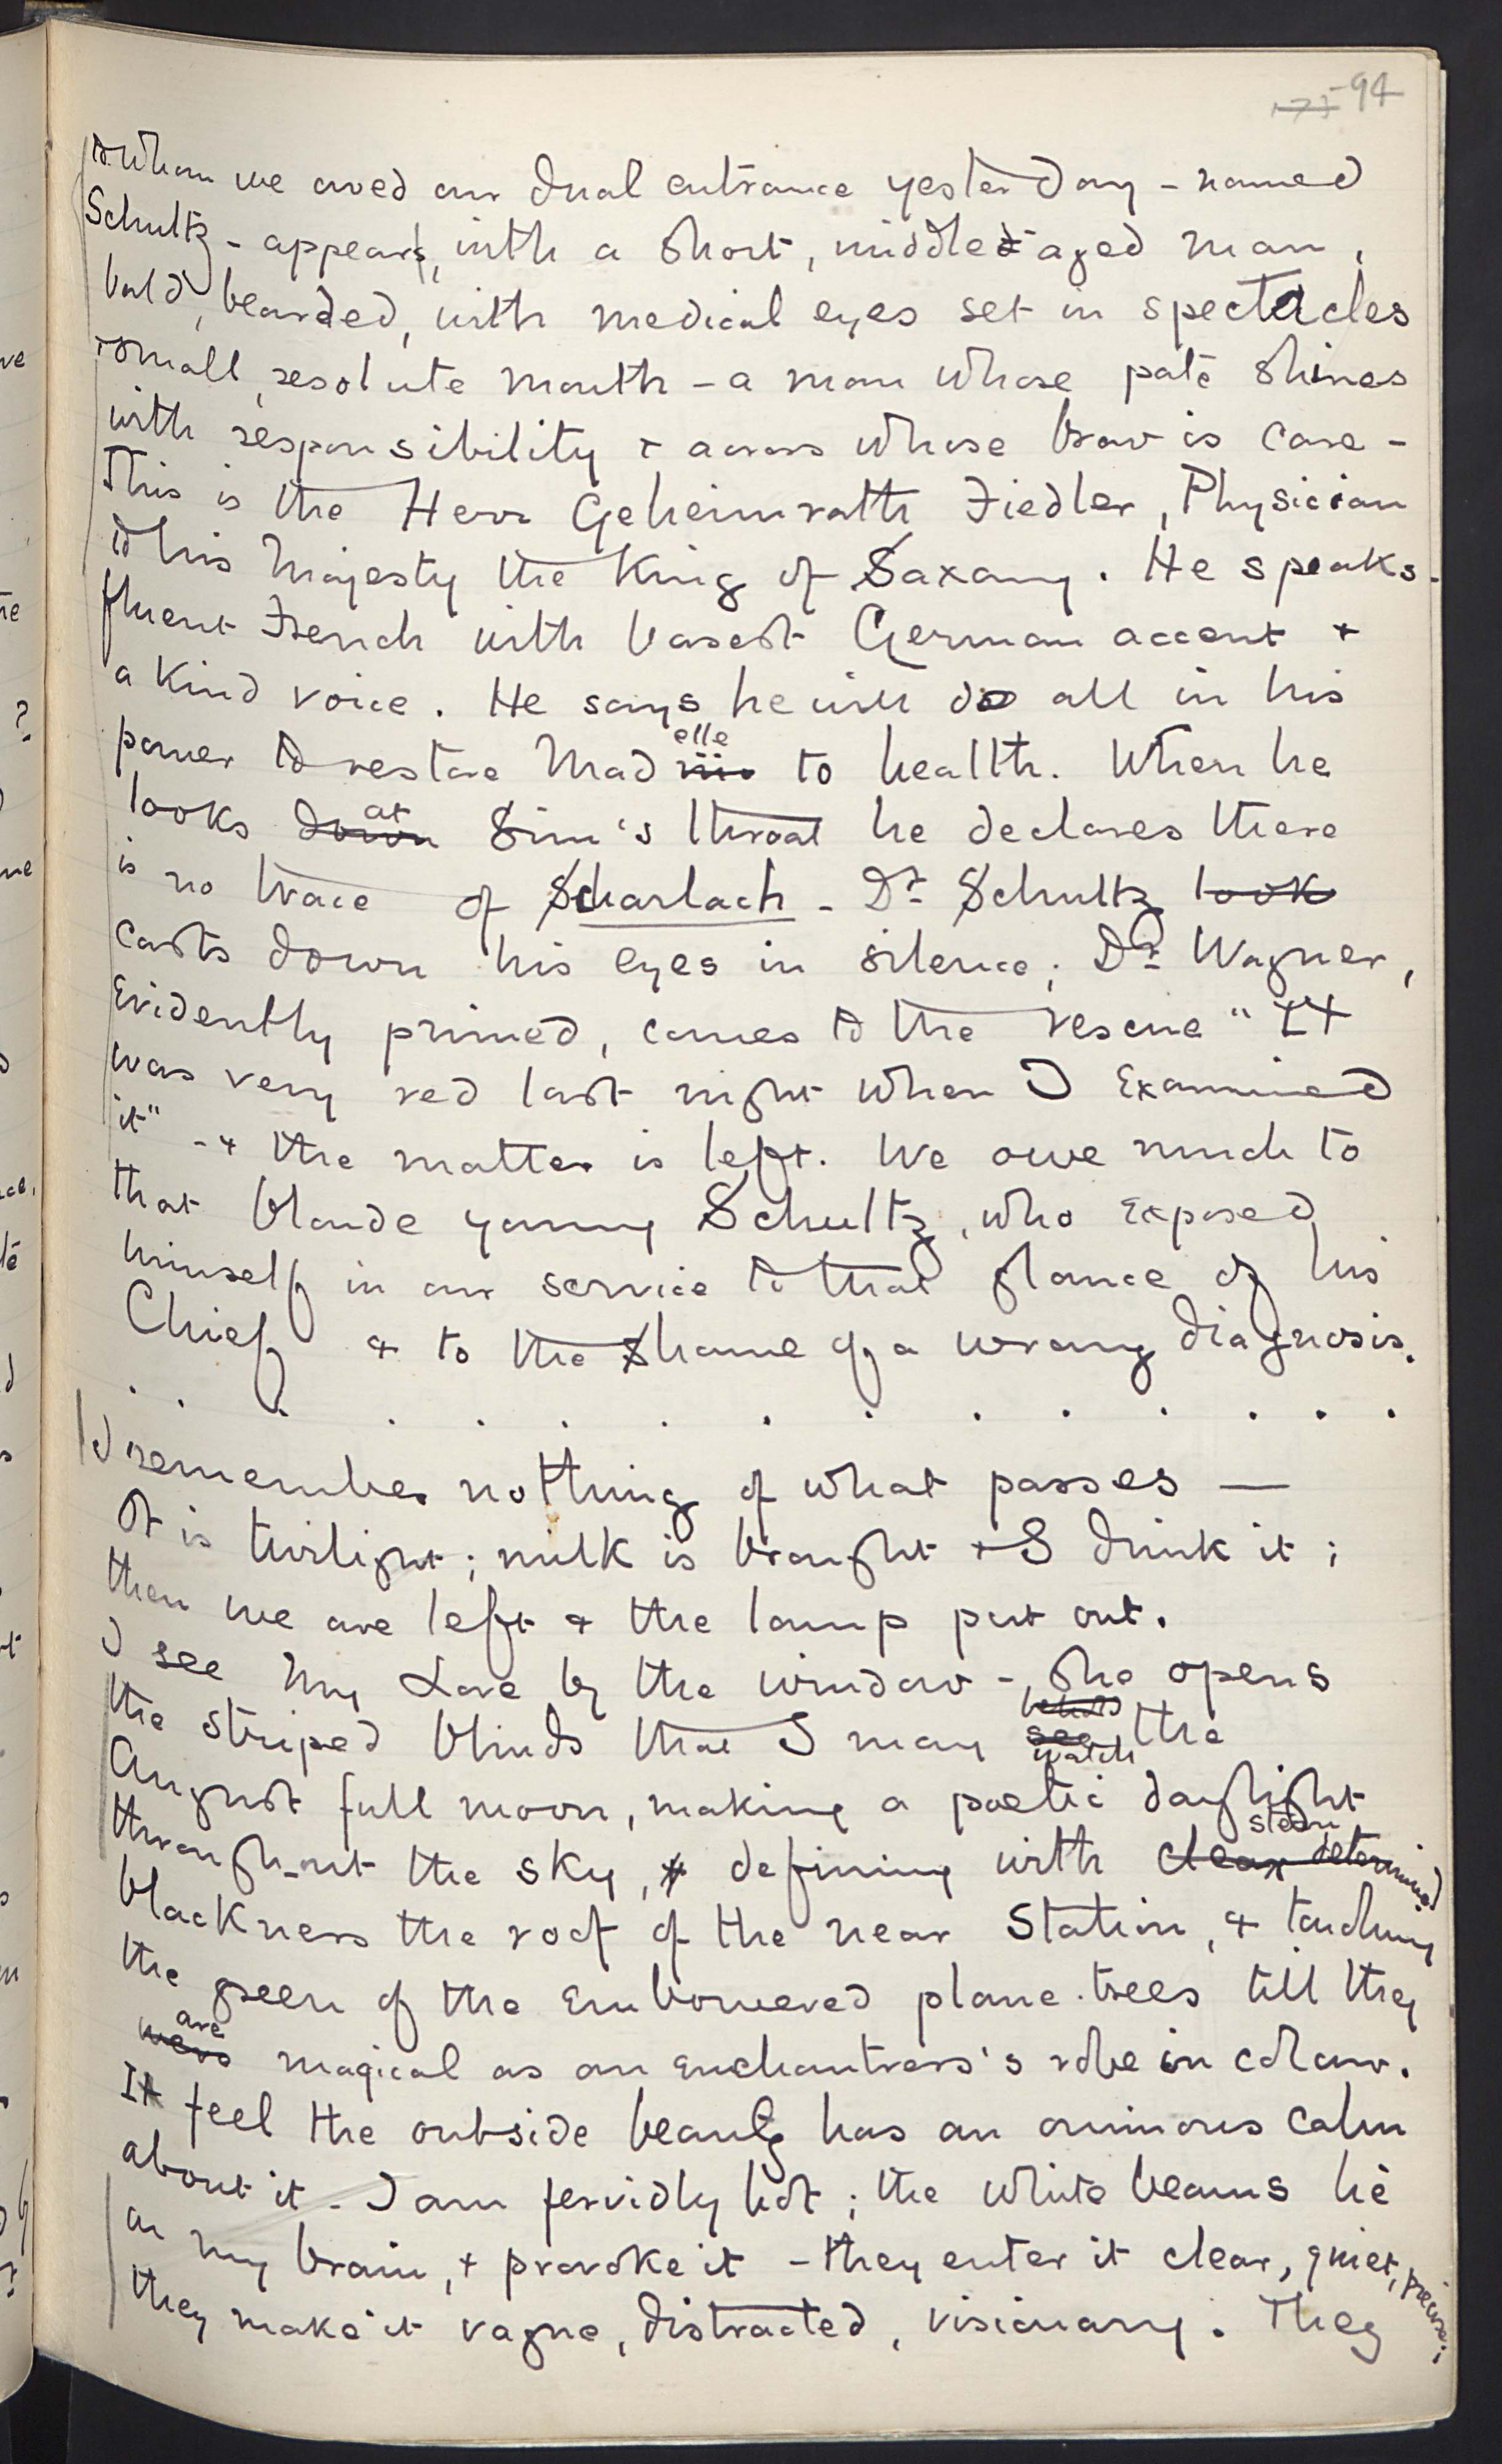 94
to whom we owed our dual entrance yesterday - named
Schultz - appears, with a short, middle-aged man,
bald, bearded, with medical eyes set in spectacles
& small, resolute mouth - a man whose pate shines
with responsibility & across whose brow is care -
This is the Herr Geheimrath Fiedler, Physician
to his Majesty the King of Saxony. He speaks
fluent French with basest German accent &
a kind voice. He says he will do all in his
power to restore Madelle to health. When he
looks down at Sim's throat he declares there
is no trace of Scharlach - Dr Schultz look
casts down his eyes in silence; Dr Wagner,
evidently primed, comes to the rescue "It
was very red last night when I examined
it" - & the matter is left. We owe much to
that blonde young Schultz, who exposed
himself in our service to that glance of his
Chief & to the shame of a wrong diagnosis.
. . . . . . . . . . . . . .
I remember nothing of what passes —
It is twilight; milk is brought & I drink it;
then we are left & the lamp put out.
I see My Love by the window - she opens
the striped blinds that I may see watch the
August full moon, making a poetic daylight
throughout the sky, & defining with clear determined
blackness the roof of the near Station, & touching
the green of the embowered plane-trees till they
were are magical as an enchantress's robe in colour.
I feel the outside beauty has an ominous calm
about it - I am fervidly hot; the white beams lie
on my brain, & provoke it - they enter it clear, quiet, precise;
they make it vague, distracted, visionary. They